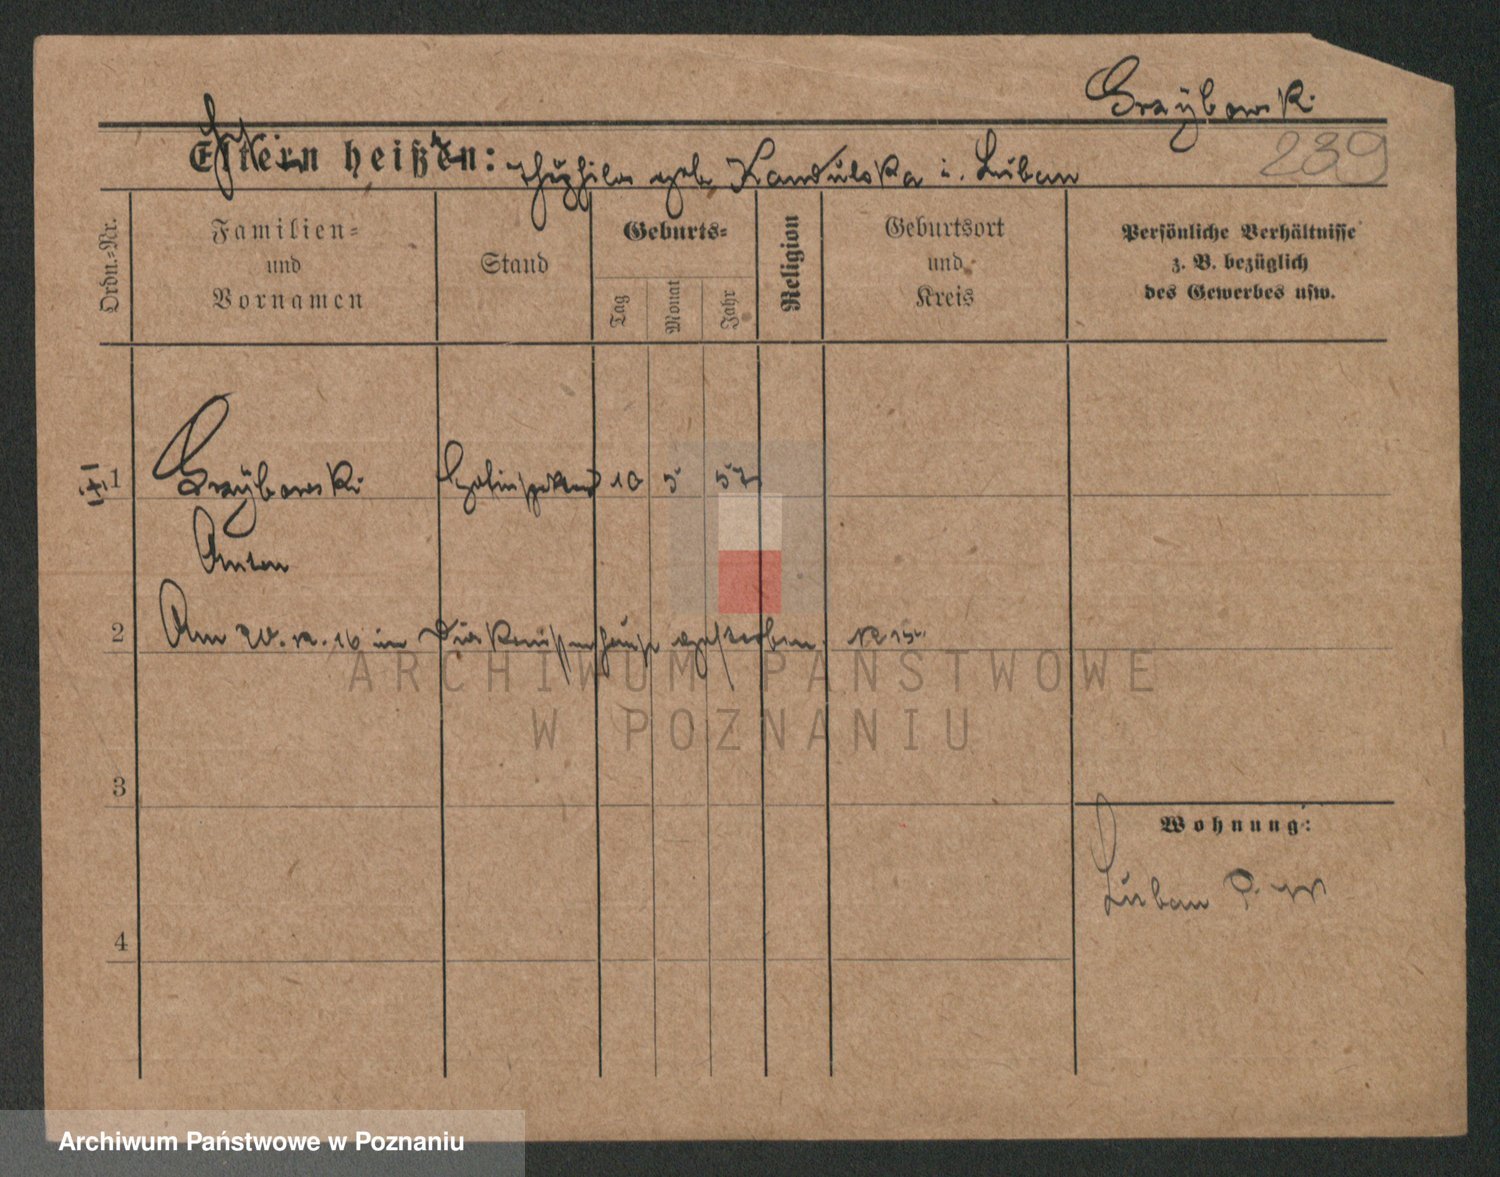 Grzybowski
239
Eltern heißen:
geb. Kandulska i. Luban
Ordn.-Nr.
Familien=
und
Vornamen
Stand
Geburts=
Tag
Monat
Jahr
Religion
Geburtsort
und
Kreis
Persönliche Verhältnisse
z. B. bezüglich
des Gewerbes usw.
1 Grzybowski 10 5 57
Anton
2 Am 20. 12. 16 im Diakonissenhause gestorben.
ARCHIWUM PAŃSTWOWE
W POZNANIU
3
Wohnung:
Luban P. W
4
Archiwum Państwowe w Poznaniu